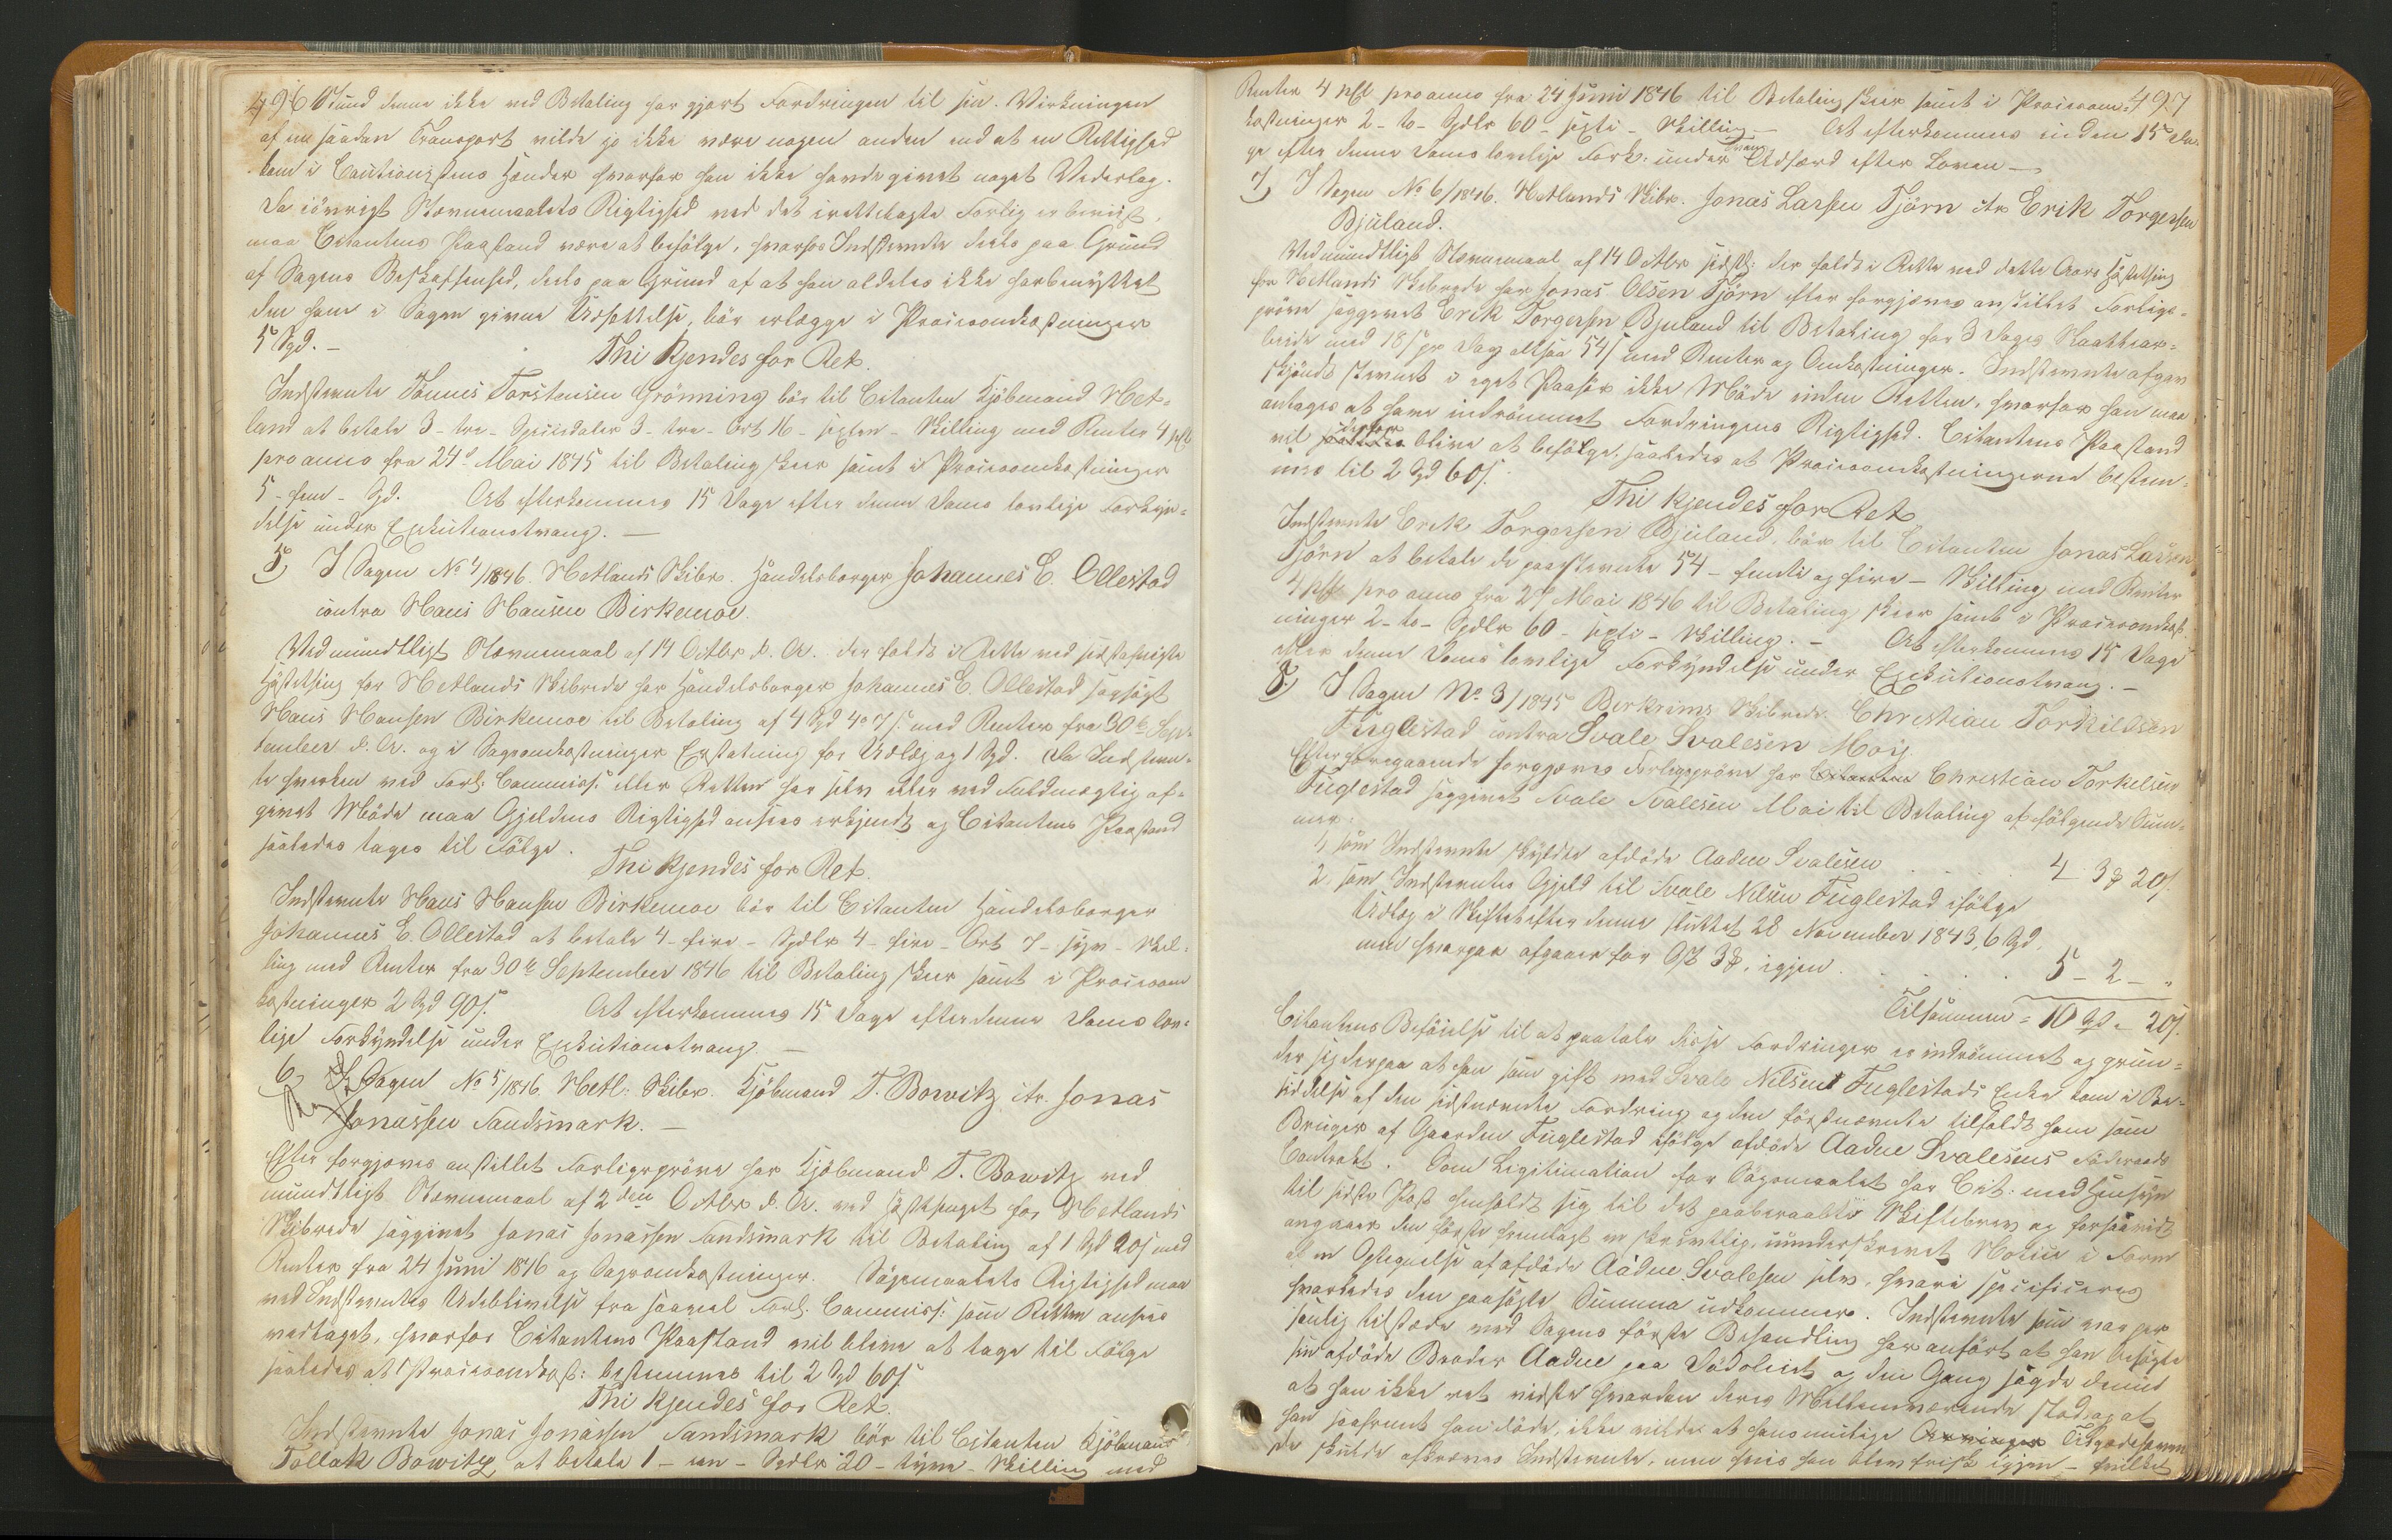 496
Stund denne ikke ved Betaling har gjort Fordringen til sin. Virkningen
af en saadan Transport vilde jo ikke være nogen anden end at en Rettighed
kom i Cautionistens Hænder hvorfor han ikke havde givet noget Vederlag.
Da iövrigt Stevnemaalets Rigtighed ved det irettelagte Forlig er beviist,
maa Citantens Paastand være at befölge, hvorfor Indstevnte deels paa Grund
af Sagens Beskaffenhed, deels paa Grund af at han aldeles ikke har benyttet
den ham i Sagen givne Udsettelse, bör erlægge i Procesomkostninger
5 Spd. —
Thi kjendes for Ret.
Indstevnte Tönnes Torstensen Grönning bör til Citanten Kjöbmand Het-
land at betale 3 - tre - Speciedaler 3 - tre - Ort 16 - sexten - Skilling med Renter 4 pCt
pro anno fra 24de Mai 1845 til Betaling skeer samt i Procesomkostninger
5 - fem - Spd. At efterkommes 15 Dage efter denne Doms lovlige Forkyn-
delse under Exekutionstvang. —
5) I Sagen No 4/1846. Hetlands Skibr. Handelsborger Johannes E. Ollestad
contra Hans Hansen Birkemoe.
Ved mundtligt Stevnemaal af 14 Octbr d. A. der faldt i Rette ved sidstafvigte
Høstething for Hetlands Skibrede har Handelsborger Johannes E. Ollestad sagsögt
Hans Hansen Birkemoe til Betaling af 4 Spd 4 o 7 s. med Renter fra 30te Sep-
tember d. A. og i Sagsomkostninger Erstatning for Udlæg og 1 Spd. Da Indstevn-
te hverken ved Forl. Commiss. eller Retten har selv eller ved Fuldmægtig af-
givet Möde maa Gjeldens Rigtighed ansees erkjendt og Citantens Paastand
saaledes tages til Fölge.
Thi kjendes for Ret.
Indstevnte Hans Hansen Birkemoe bör til Citanten Handelsborger
Johannes E. Ollestad at betale 4 - fire - Spdlr 4 - fire - Ort 7 - syv - Skil-
ling med Renter fra 30te September 1846 til Betaling skeer samt i Procesom
kostninger 2 Spd 90 s. At efterkommes 15 Dage efter denne Doms lov-
lige Forkyndelse under Exekutionstvang. —
6) I Sagen No 5/1846 Hetl: Skibr. Kjöbmand T. Bowitz ctr. Jonas
Jonassen Sandsmark. —
Efter forgjæves anstillet Forligspröve har Kjöbmand T. Bowitz ved
mundtligt Stevnemaal af 2den Octbr d. A. ved Höstethinget for Hetlands
Skibrede saggivet Jonas Jonassen Sandsmark til Betaling af 1 Spd 20 s med
Renter fra 24 Juni 1846 og Sagsomkostninger. Sögsmaalets Rigtighed maa
ved Indstevntes Udeblivelse fra saavel Forl: Commiss: som Retten ansees
vedtaget, hvorfor Citantens Paastand vil blive at tage til Fölge
saaledes at Procesomkost: bestemmes til 2 Spd 60 s.
Thi kjendes for Ret.
Indstevnte Jonas Jonassen Sandsmark bör til Citanten Kjöbmand
Tollak Bowitz, at betale 1 - een - Spdlr 20 - tyve - Skilling med
497
Renter 4 pCt pro anno fra 24 Juni 1846 til Betaling skeer samt i Procesom-
kostninger 2 - to - Spdlr 60 - sexti - Skilling — At efterkommes inden 15 Da-
ge efter denne Doms lovlige Fork: under Udfærd efter Loven —
7) I Sagen No 6/1846. Hetlands Skibr. Jonas Larsen Tjörn ctr. Erik Torgersen
Bjuland.
Ved mundtligt Stevnemaal af 14 Octbr sidstl: der faldt i Rette ved dette Aars Höstething
for Hetlands Skibrede har Jonas Olsen Tjörn efter forgjæves anstillet Forligs-
pröve saggivet Erik Torgersen Bjuland til Betaling for 3 Dages Slaattear-
beide med 18 s pr Dag altsaa 54 s med Renter og Omkostninger. Indstevnte afgav
skjöndt stevnet i eget Paahör ikke Möde inden Retten, hvorfor han maa
antages at have indrömmet Fordringens Rigtighed. Citantens Paastand
vil derfor blive at befölge, saaledes at Procesomkostningerne bestem-
mes til 2 Spd 60 s.
Thi kjendes for Ret
Indstevnte Erik Torgersen Bjuland, bör til Citanten Jonas Larsen
Tjörn at betale de paastevnte 54 - femti og fire - Skilling med Renter
4 pCt pro anno fra 27 Mai 1846 til Betaling skeer samt i Procesomkost-
ninger 2 - to - Spdlr 60 - sexti - Skilling. — At efterkommes 15 Dage
efter denne Doms lovlige Forkyndelse under Exekutionstvang. —
8) I Sagen No 3/1845 Birkrims Skibrede Christian Torkildsen
Fuglestad contra Svale Svalesen Moij.
Efter foregaaende forgjæves Forligspröve har Citanten Christian Torkelsen
Fuglestad saggivet Svale Svalesen Moi til Betaling af fölgende Sum-
mer:
1, som Indstevnte skyldte afdöde Aadne Svalesen . . . 4 3 20 s.
2, som Indstevntes Gjeld til Svale Nilsen Fuglestad ifölge
Udlæg i Skiftet efter denne sluttet 28 November 1843, 6 Spd,
men hvorpaa afgaaer for igjen . . . . . 5 - 2 - "
Tilsammen = 10 Spd " 20 s.
Citantens Beföielse til at paatale disse Fordringer er indrömmet og grun-
der sig derpaa at han som gift med Svale Nilsen Fuglestads Enke kom i Be-
siddelse af den sidstnævnte Fordring og den förstnævnte tilfaldt ham som
Bruger af Gaarden Fuglestad ifölge afdöde Aadne Svalesens Föderaads
Contrakt. Som Legitimation for Sögsmaalet har Cit: med Hensyn
til sidste Post henholdt sig til det paaberaabte Skiftebrev og forsaavidt
angaaer den förste fremlagt en skrevtlig, uunderskrevet Notice i Form
af en Optegnelse af afdöde Aadne Svalesen selv, hvori specificeres
hvorledes den paasögte Summa udkommer. Indstevnte som var per-
sonlig tilstæde ved Sagens förste Behandling har anfört at han besögte
sin afdöde Broder Aadne paa Dödsleiet og den Gang sagde denne
at han ikke ret vidste hvordan deres Mellemværende stod, og at
han saafremt han döde, ikke vilde at hans mulige Tilgodehaven
de skulde afkræves Indstevnte, men hvis han blev frisk igjen - hvilket